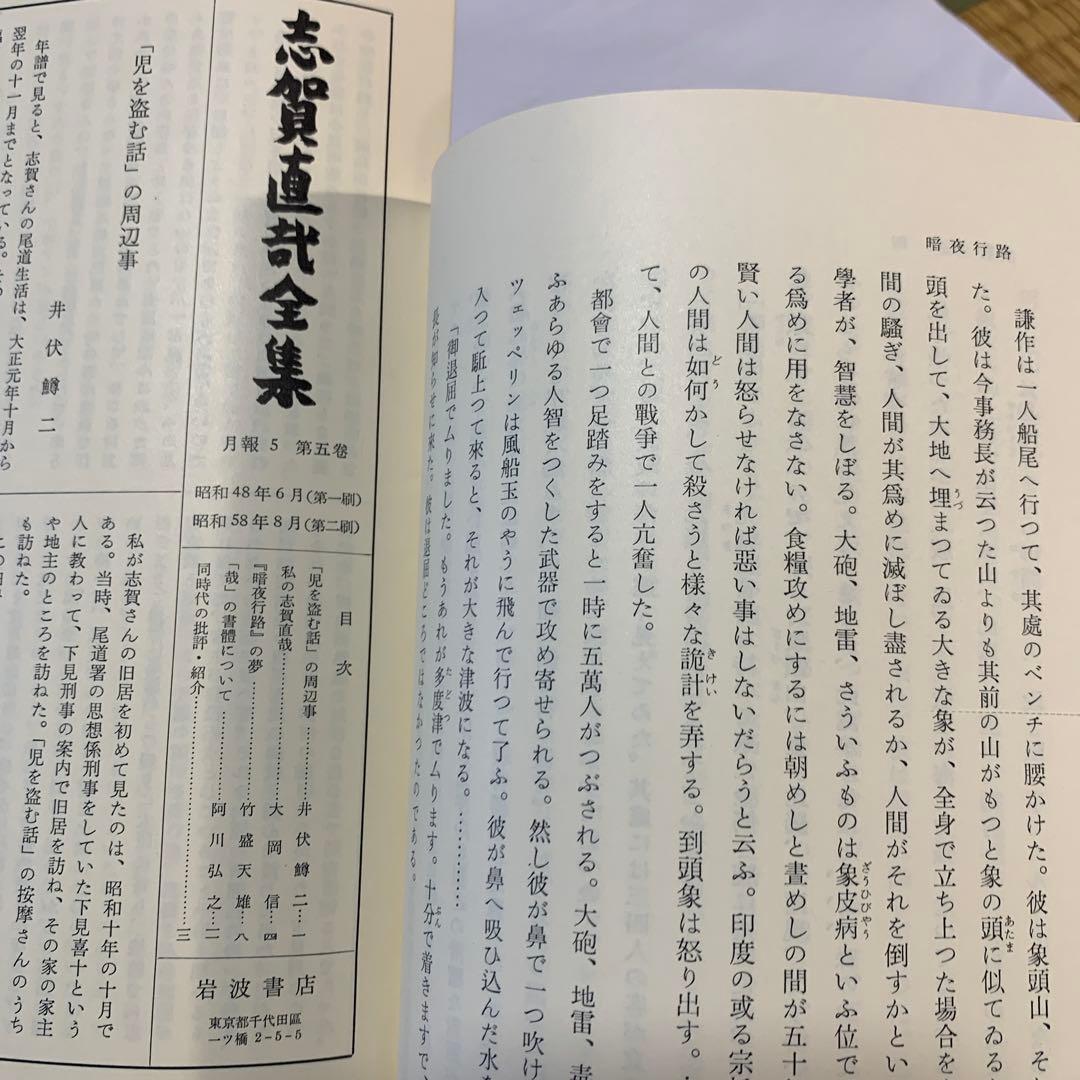 暗夜行路
謙作は一人船尾へ行つて、其處のベンチに腰かけた。彼は象頭山、そ
た。彼は今事務長が云つた山よりも其前の山がもつと象の頭に似てゐる
あたま
頭を出して、大地へ埋まつてゐる大きな象が、全身で立ち上つた場合を
うづ
間の騒ぎ、人間が其爲めに滅ぼし盡されるか、人間がそれを倒すかとい
學者が、智慧をしぼる。大砲、地雷、さういふものは象皮病といふ位で
ざうひびやう
る爲めに用をなさない。食糧攻めにするには朝めしと晝めしの間が五十
賢い人間は怒らせなければ惡い事はしないだらうと云ふ。印度の或る宗
の人間は如何かして殺さうと樣々な詭計を弄する。到頭象は怒り出す。
どう
きけい
て、人間との戰爭で一人亢奮した。
都會で一つ足踏みをすると一時に五萬人がつぶされる。大砲、地雷、毒
ふあらゆる人智をつくした武器で攻め寄せられる。然し彼が鼻で一つ吹け
ツェッペリンは風船玉のやうに飛んで行つて了ふ。彼が鼻へ吸ひ込んだ水を
入つて駈上つて來ると、それが大きな津波になる。………
「御退屈でムりました。もうあれが多度津でムります。十分で着きますで、
たどつ
ぷん
長が知らせに來た。彼は退屈どころではなかつたのである。
志賀直哉全集
月報5 第五卷
昭和48年6月(第一刷)
昭和58年8月(第二刷)
目次
「児を盗む話」の周辺事………井伏鱒二…一
私の志賀直哉………大岡信…四
『暗夜行路』の夢………竹盛天雄…八
「哉」の書體について………阿川弘之…二
同時代の批評・紹介………三
岩波書店
東京都千代田區
一ツ橋2-5-5
「児を盗む話」の周辺事
井伏鱒二
年譜で見ると、志賀さんの尾道生活は、大正元年十月から
翌年の十一月までとなっている。
私が志賀さんの旧居を初めて見たのは、昭和十年の十月で
ある。当時、尾道署の思想係刑事をしていた下見喜十という
人に教わって、下見刑事の案内で旧居を訪ね、その家の家主
や地主のところを訪ねた。「児を盗む話」の按摩さんのうち
も訪ねた。